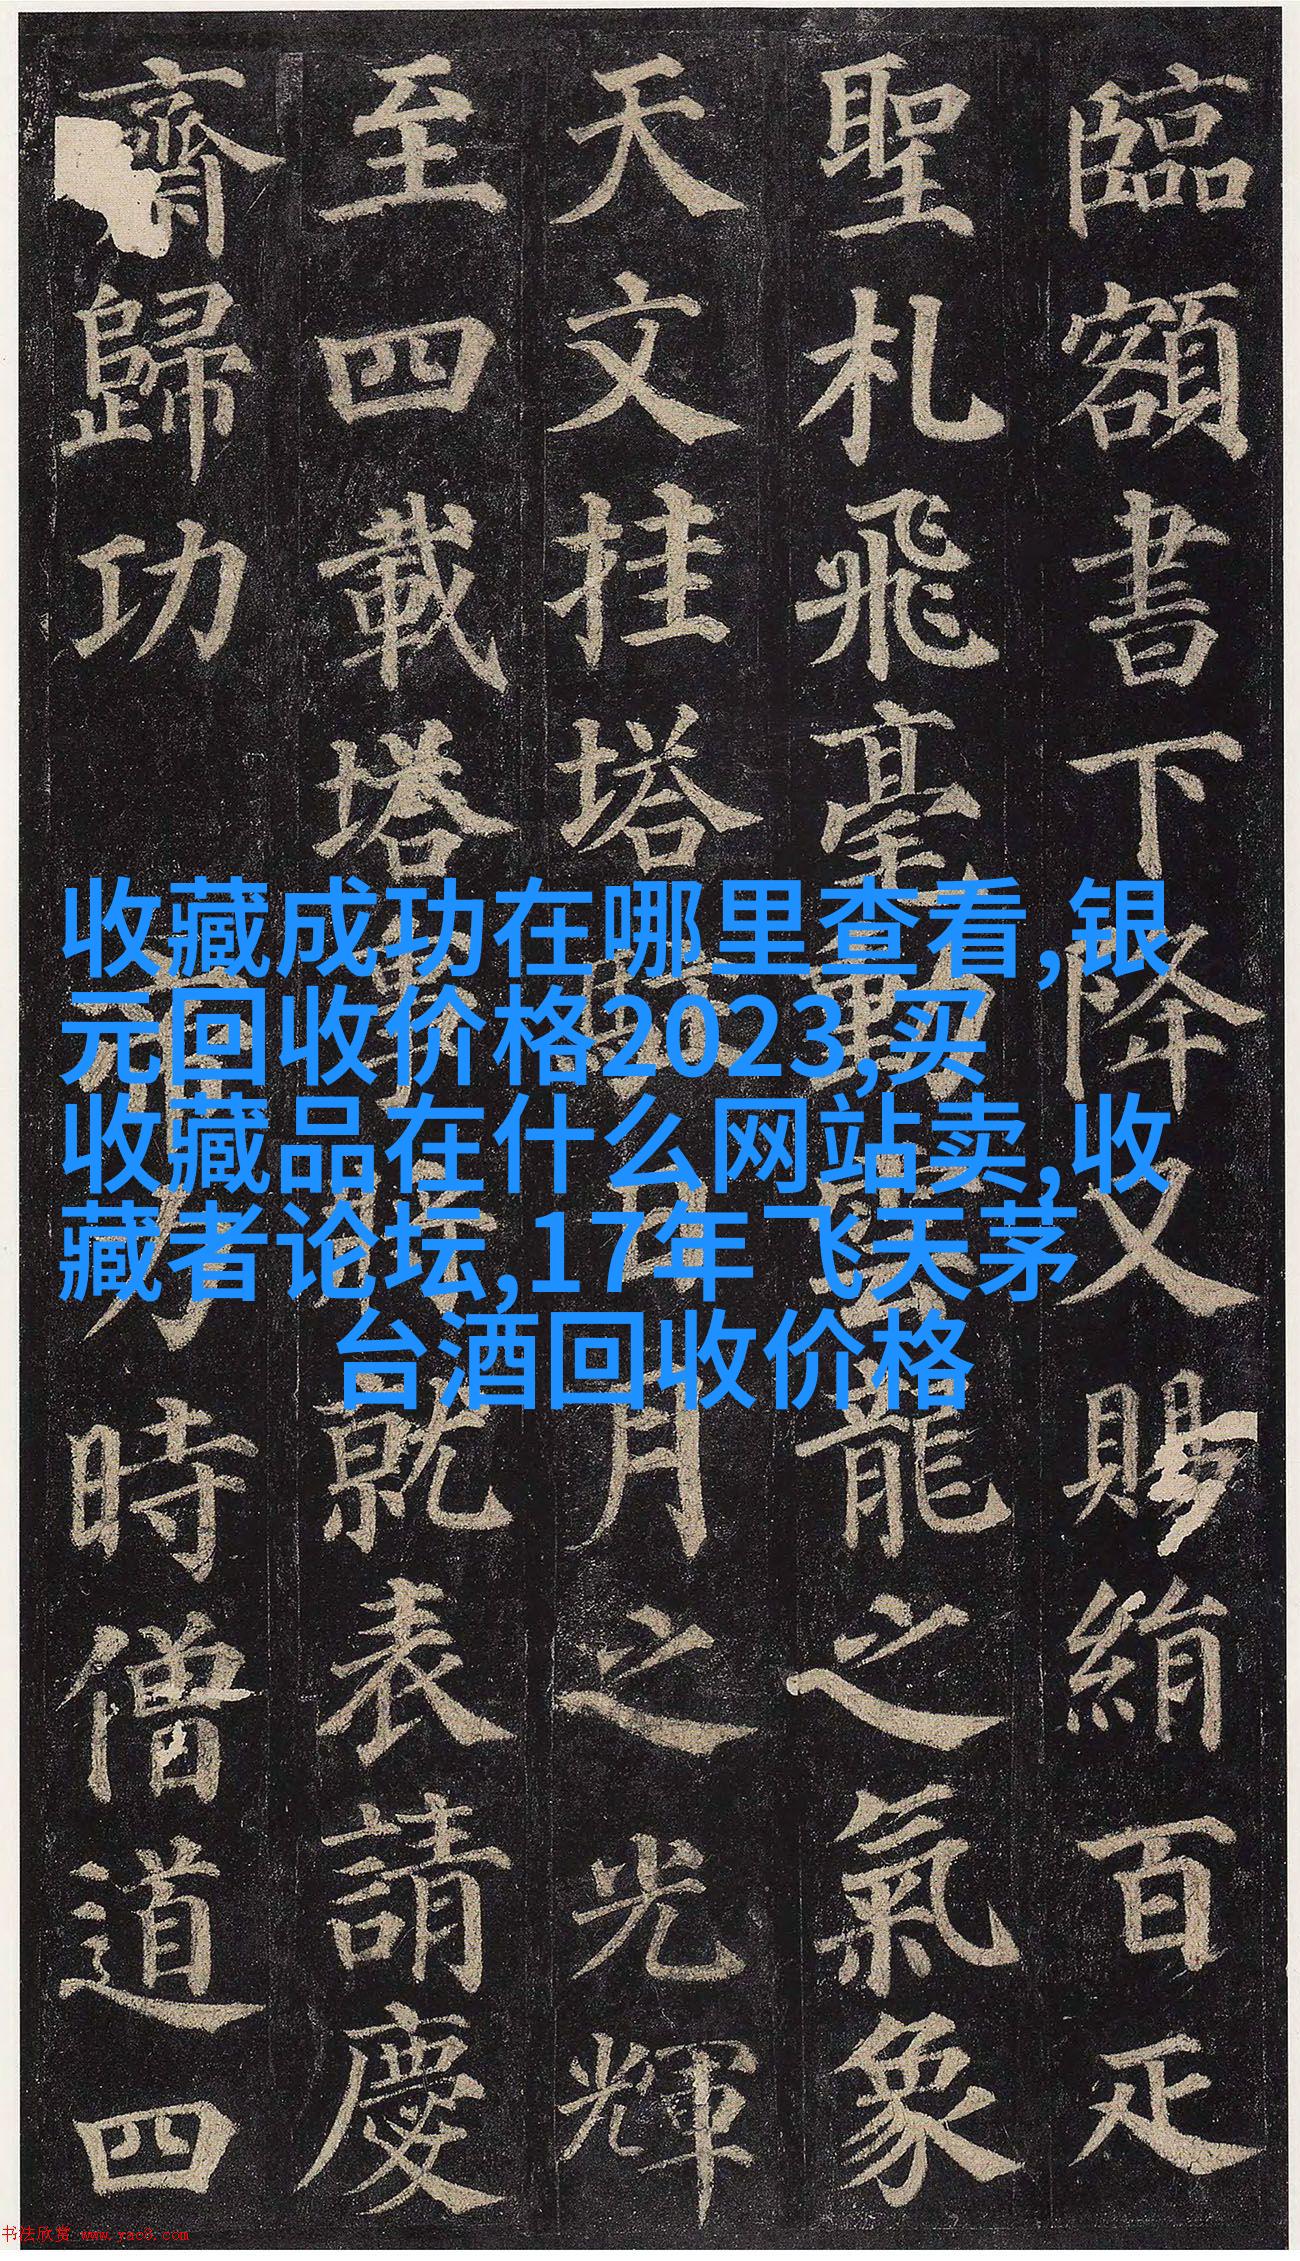 臨額書下降又賜絹百疋
聖札飛毫動雲龍之氣象
天文挂塔駐日月之光輝
至四載塔事將就表請慶
齋歸功帝力時僧道四
收藏成功在哪里查看,银
元回收价格2023,买
收藏品在什么网站卖,收
藏者论坛,17年飞天茅
台酒回收价格
书法欣赏 www.yac8.com